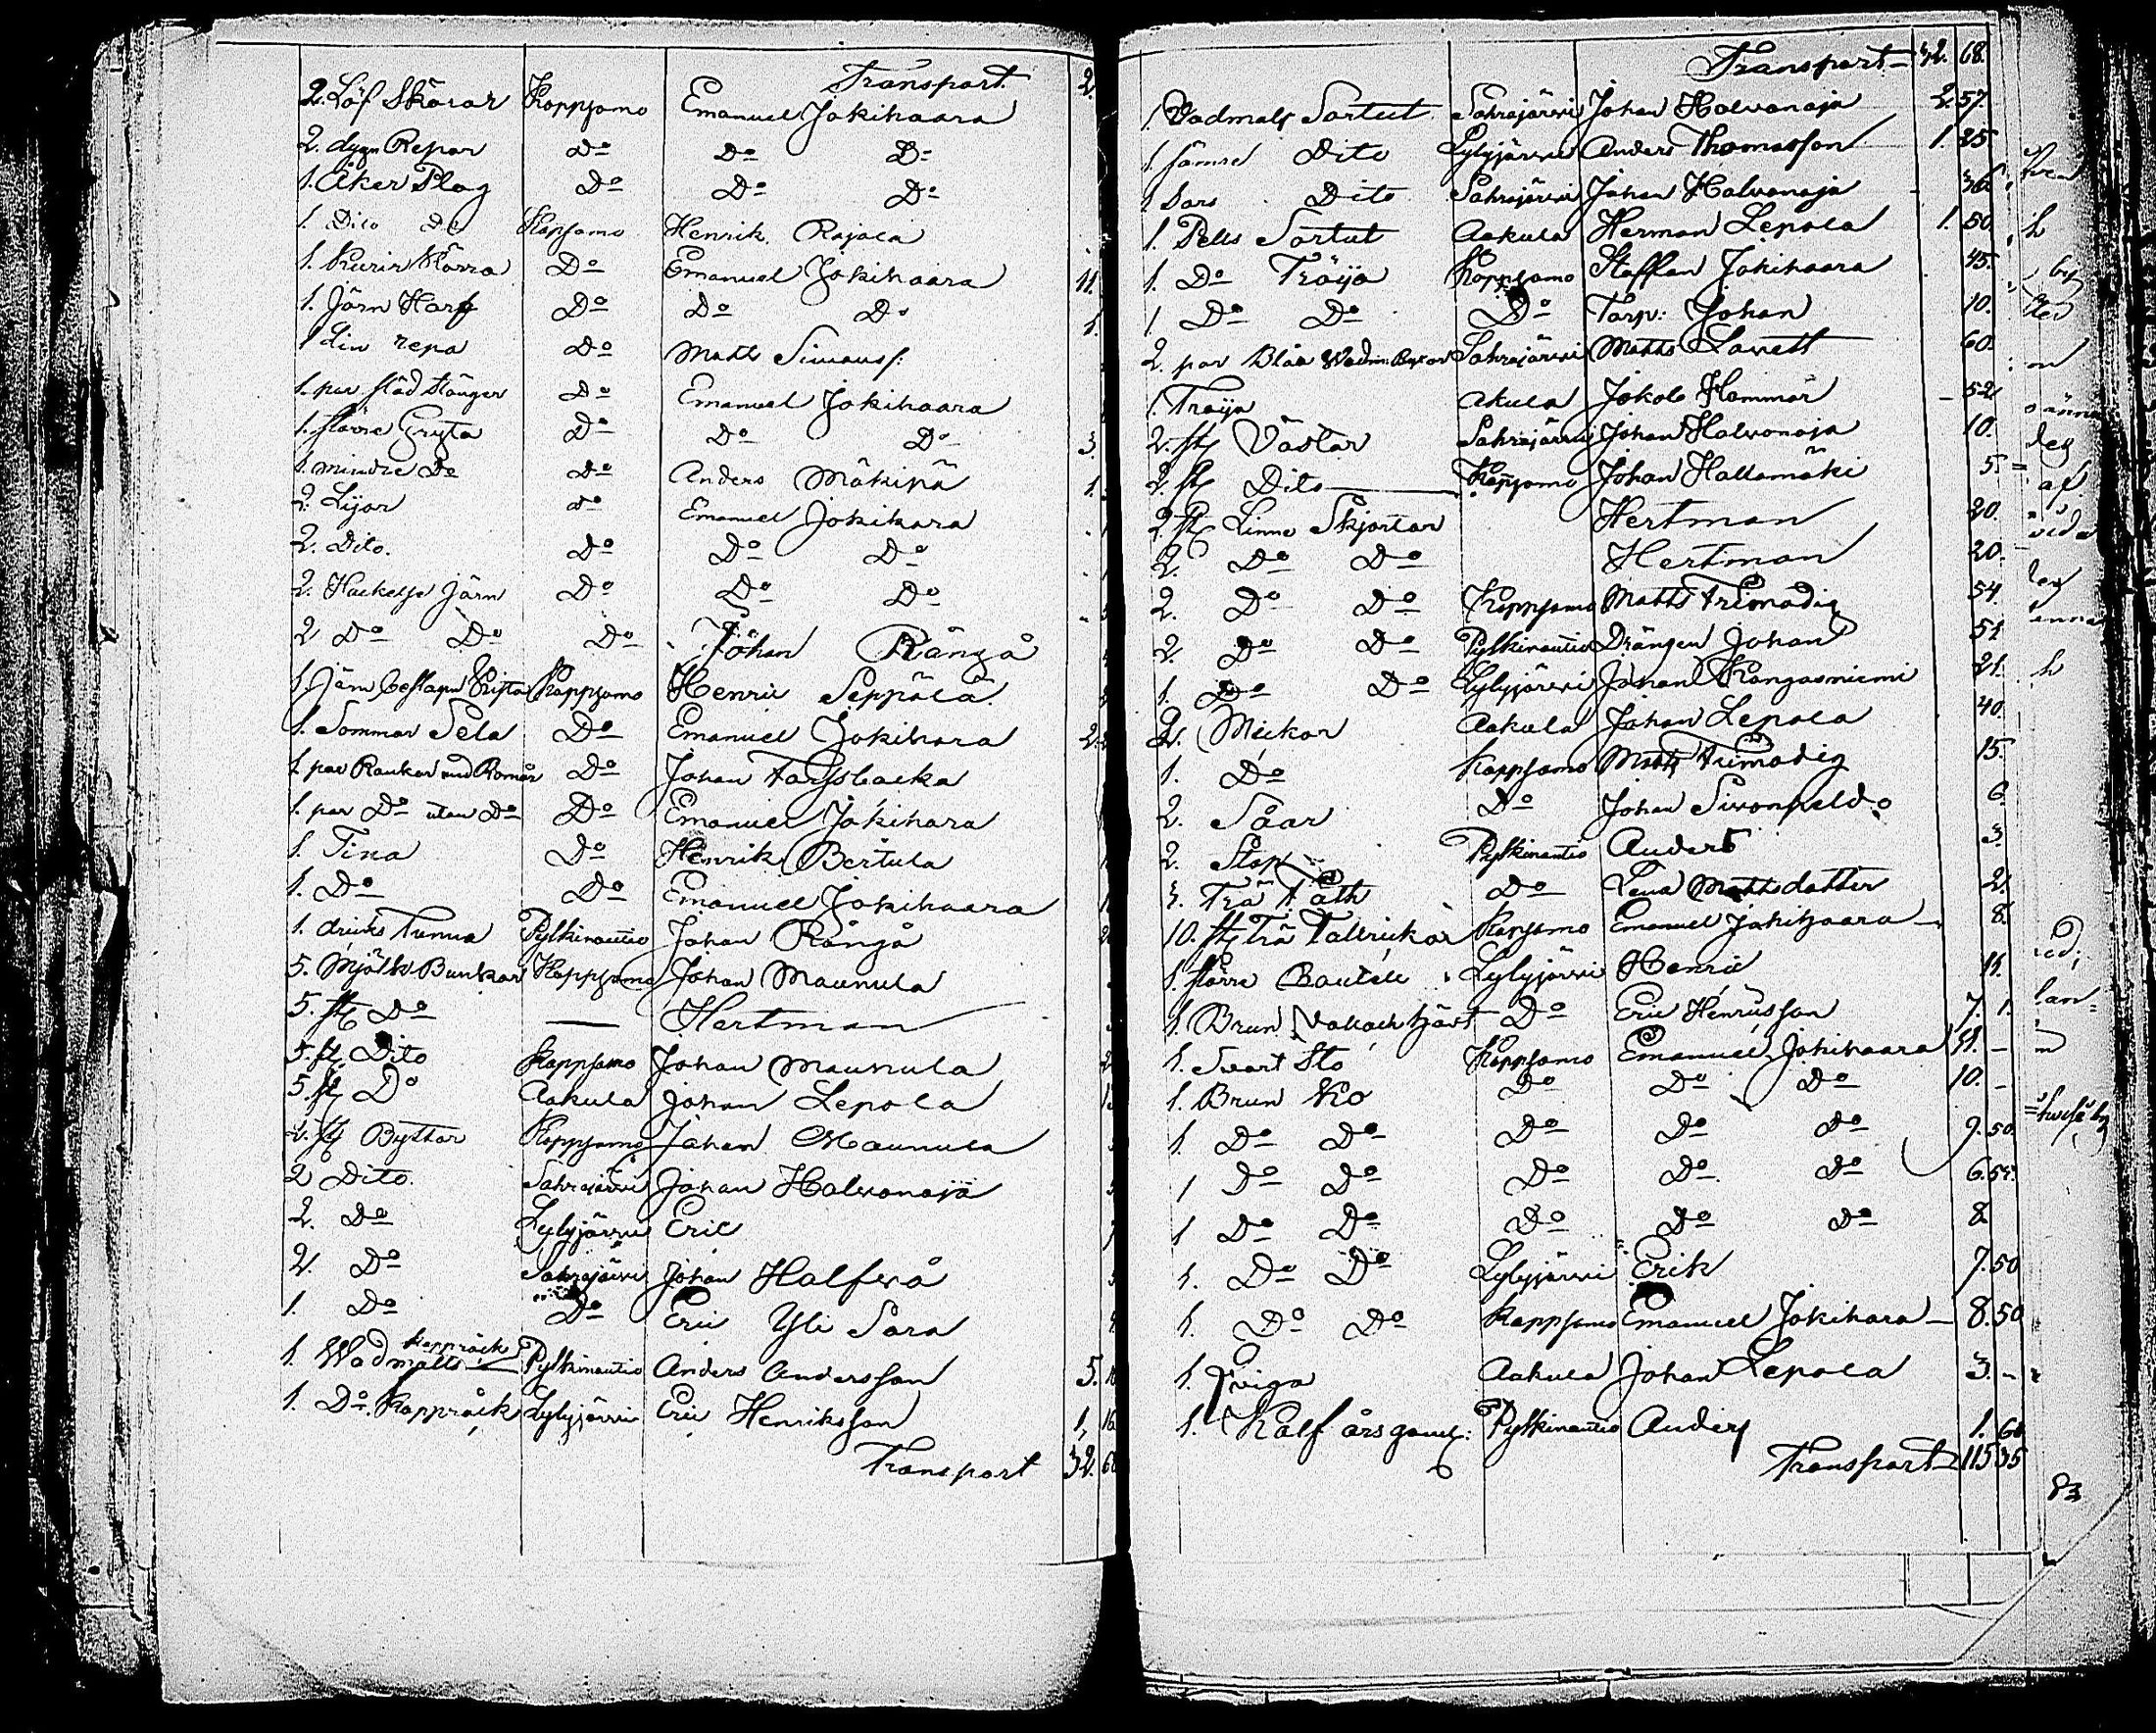 Transport 2.
2. Löf Skäror Koppsamo Emanuel Jokihaara
2. dygn Repor Do Do Do
1. Åker Plog Do Do Do
1. Dito Do Kopsamo Henrik Rajala
1. Kärra Do Emanuel Jokihaara 11.
1. Järn Harf Do Do Do 1
1 lin repa Do Matts Simonss:
1. par städ stänger Do Emanuel Jokihaara
1. större Gryta Do Do Do 3.
1. mindre Do Do Anders Mäkipä 1.
2. Lijor Do Emanuel Jokihara
2. Dito. Do Do Do
2. Hackelse Järn Do Do Do
2 Do Do Do Johan Rångå
1. Järn beslagen Koppsamo Henric Seppälä
1. Sommar Sela Do Emanuel Jokihara 2.
1. par Rankor med Do Johan Torsbacka
1. par Do utan Do Do Emanuel Jokihara
1. Tina Do Henrik Bertula
1. Do Do Emanuel Jokihaara
1. dricks Tunna Pylkinautio Johan Rångå
5. Mjölk Bunkar Koppsamo Johan Maunula
5. st Do — Hertman
5. st Dito Koppsamo Johan Maunula
5. st Do Aakula Johan Lepola
2. st Byttor Koppsamo Johan Maunula
2 Dito. Sahrajärvi Johan Halvonoja
2. Do Lylyjärvi Eric
2. Do Sahrajärvi Johan Halfvå
1. Do Do Eric Yli Sara
1. Wadmals kapprock Pylkinautio Anders Andersson 5.
1. Do Kapprock Lylyjärvi Eric Henriksson 1. 16
Transport 32. 68
Transport 32. 68.
1. Vadmals Sortut Sahrajärvi Johan Halvonoja 2. 57.
1 sämre Dito Lylyjärvi Anders Thomasson 1. 25
1 Dito Sahrajärvi Johan Halvonoja 36
1. Pells Sortut Aakula Herman Lepola 1. 50.
1. Do Tröija Koppsamo Staffan Jokihaara 45.
1. Do Do Do Torp: Johan 10.
2. par Blåa Wadm: Byxor Sahrajärvi Matts Lavett 60.
1. Troija Akula Jakob Hammar 52
2. st Västar Sahrajärvi Johan Halvonoja 10.
2. st Dito Kopsamo Johan Hallamäki 5.
2. st Linne Skjortor Hertman 20.
2. Do Do Hertman 20.
2. Do Do Koppsamo Matts Frimodig 54.
2. Do Do Pylkinautio Drängen Johan 51
1. Do Do Lylyjärvi Johan Kangasniemi 21.
2. Mickor Aakula Johan Lepola 40.
1. Do Koppsamo Matts Frimodig 15.
2. Såar Do Johan 6
2. Stop Pylkinautio Anders 3.
Trä fath Do Lena Mattsdotter 2.
10. st Trä Tallrickar Kopsamo Emanuel Jokihaara 8.
1. större Lylyjärvi Henric 11.
1. Brun Vallach Do Eric Henricsson 7. 1.
1. Svart Sto Koppsamo Emanuel Jokihaara 11. —
1. Brun Ko Do Do Do 10. —
1. Do Do Do Do Do 9. 50.
1 Do Do Do Do Do 6. 54.
1 Do Do Do Do Do 8.
1. Do Do Lylyjärvi Erik 7. 50
1. Do Do Koppsamo Emanuel Jokihara 8. 50
1. Qviga Aakula Johan Lepola 3. -
1. Kalf årsgaml: Pylkinautio Anders 1. 60
Transport 115 35